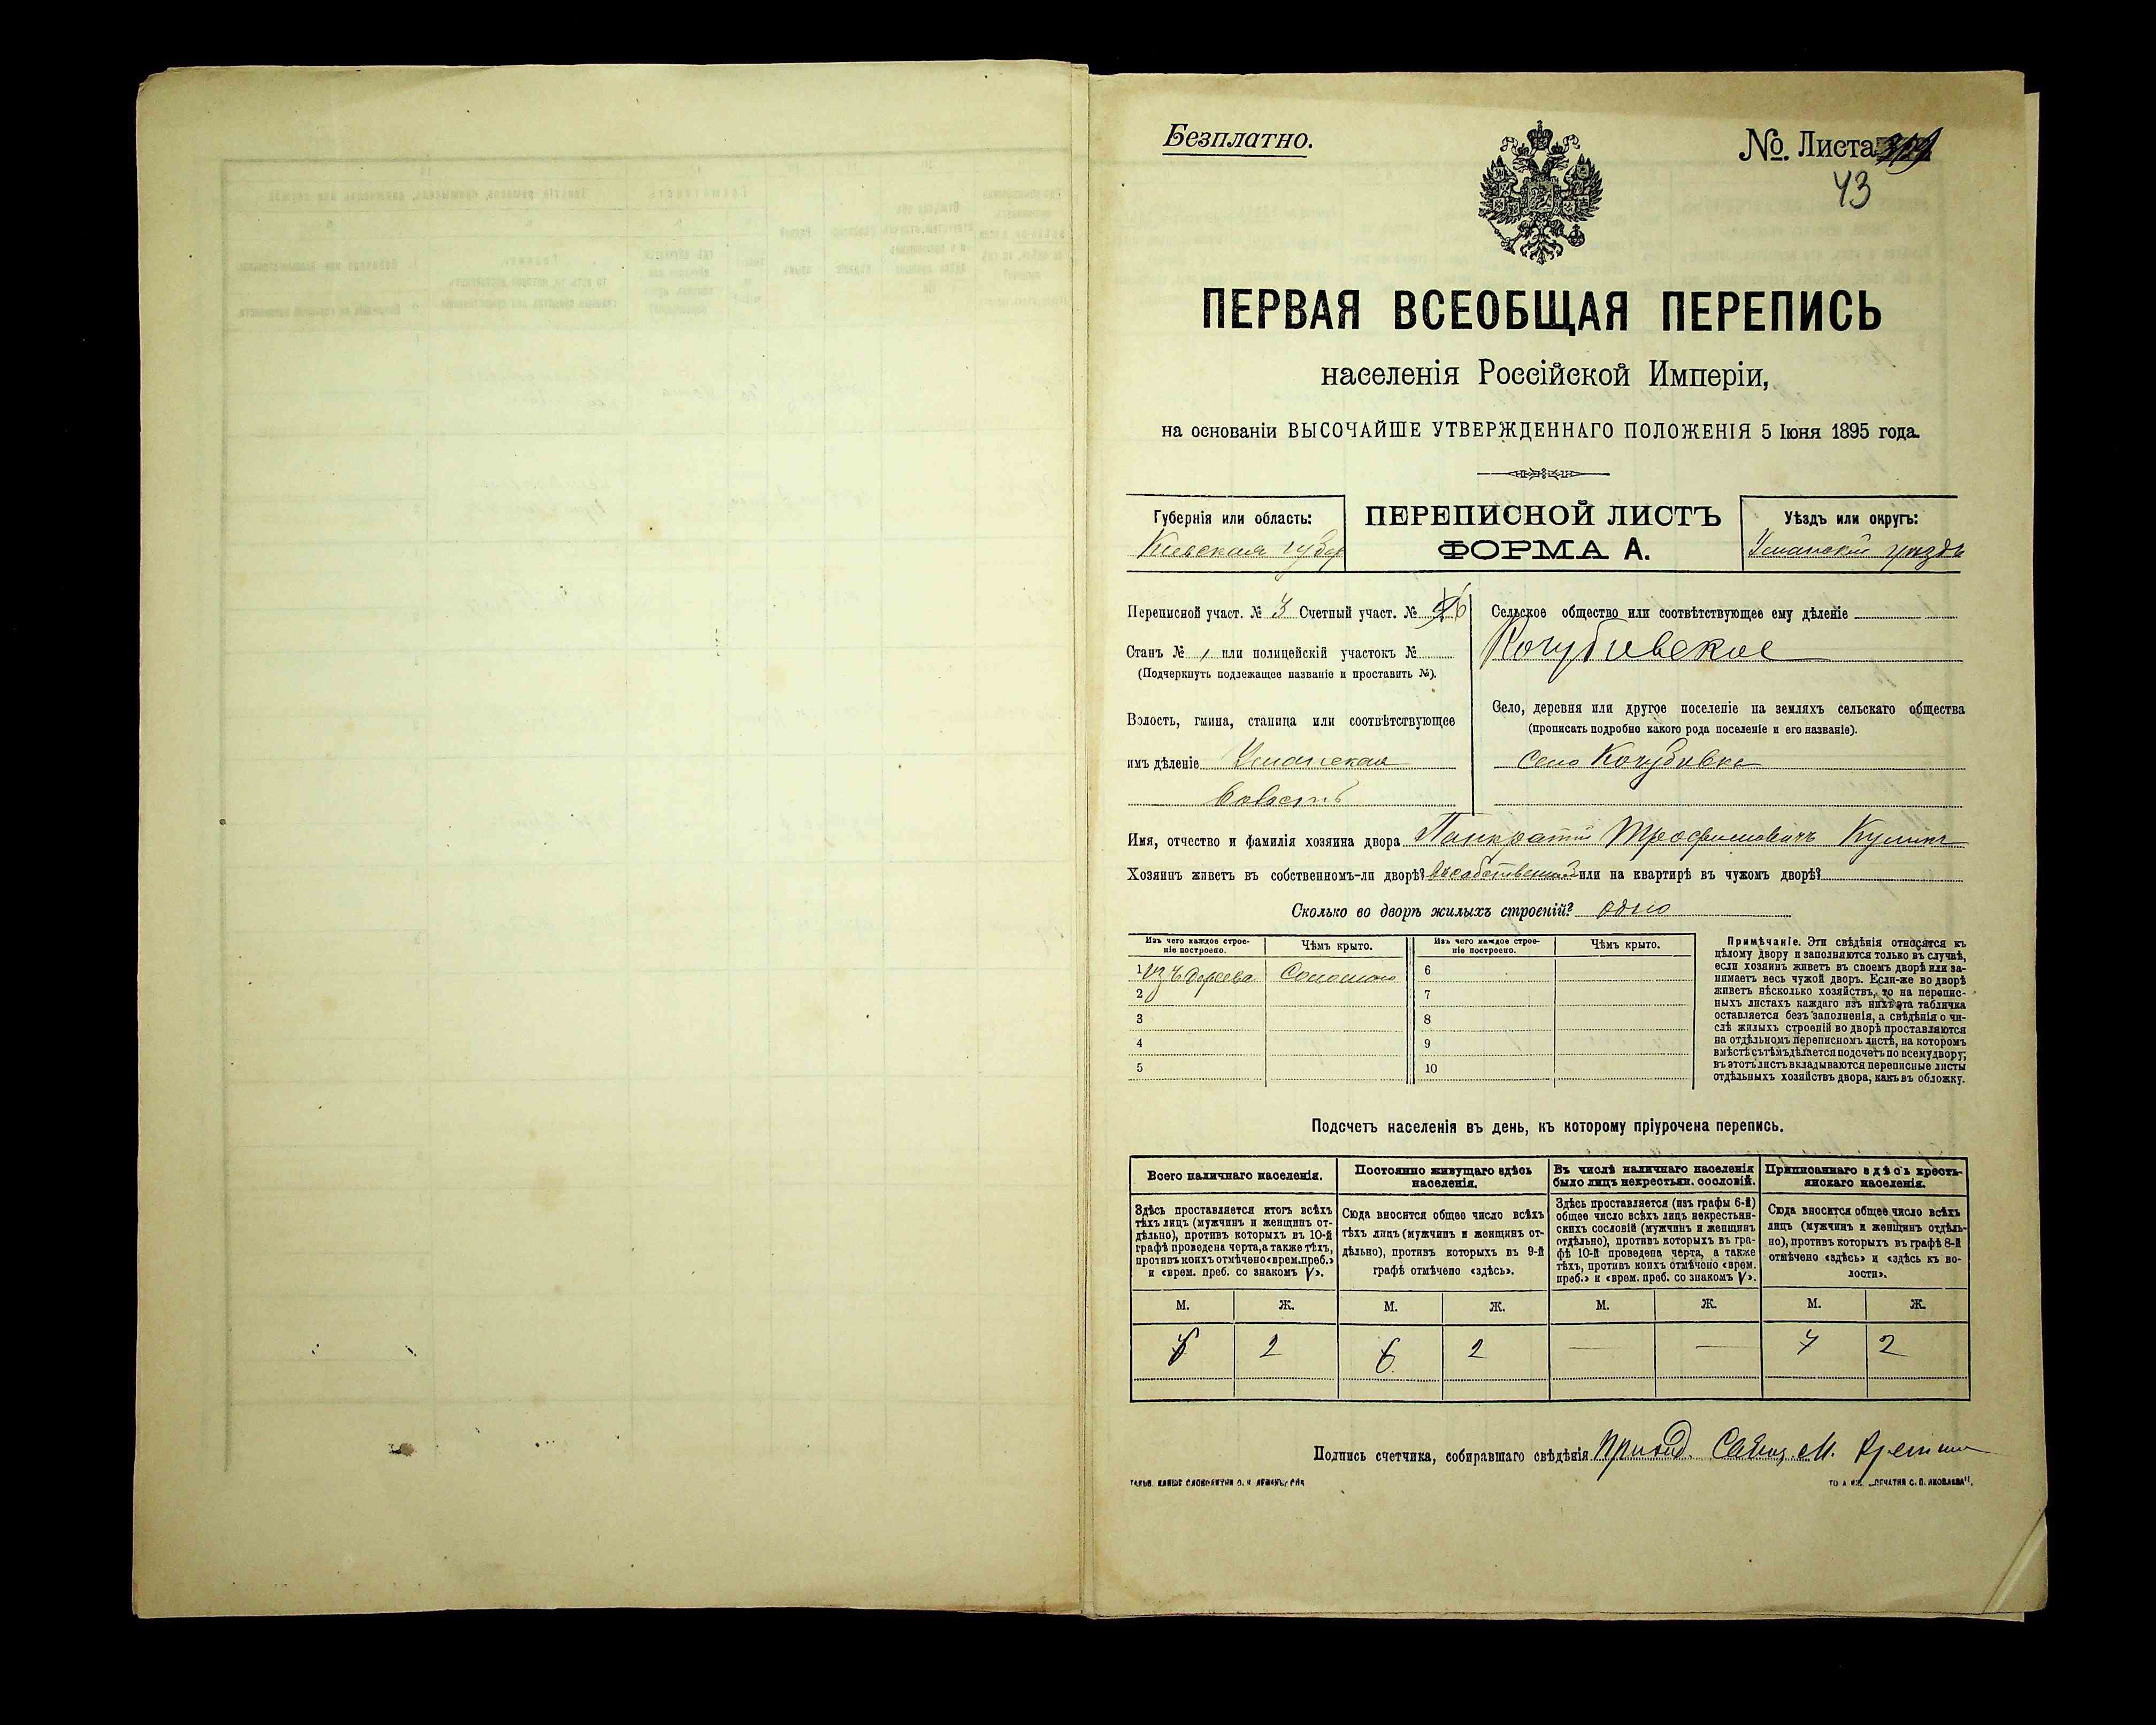 Безплатно.
№. Листа
43
ПЕРВАЯ ВСЕОБЩАЯ ПЕРЕПИСЬ
населенія Россійской Имперіи,
на основаніи ВЫСОЧАЙШЕ УТВЕРЖДЕННАГО ПОЛОЖЕНІЯ 5 Іюня 1895 года.
Губернія или область:
Кіевская губер
ПЕРЕПИСНОЙ ЛИСТЪ
ФОРМА А.
Уѣздъ или округъ:
Уманскій уѣздъ
Переписной участ. № 3 Счетный участ. №
Станъ № 1 или полицейскій участокъ №
(Подчеркнуть подлежащее названіе и проставить №).
Волость, гмина, станица или соотвѣтствующее
имъ дѣленіе Уманская
волость
Сельское общество или соотвѣтствующее ему дѣленіе
Кочубиевское
Село, деревня или другое поселеніе на земляхъ сельскаго общества
(прописать подробно какого рода поселеніе и его названіе).
село Кочубиевка
Имя, отчество и фамилія хозяина двора Панкратій Трофимовичъ
Хозяинъ живетъ въ собственномъ-ли дворѣ? или на квартирѣ въ чужомъ дворѣ?
Сколько во дворѣ жилыхъ строеній? одно
Изъ чего каждое строе-
ніе построено.
Чѣмъ крыто.
Изъ чего каждое строе-
ніе построено.
Чѣмъ крыто.
1 изъ дерева Соломою 6
2 7
3 8
4 9
5 10
Примѣчаніе. Эти свѣдѣнія относятся къ
цѣлому двору и заполняются только въ случаѣ,
если хозяинъ живетъ въ своемъ дворѣ или за-
нимаетъ весь чужой дворъ. Если-же во дворѣ
живетъ нѣсколько хозяйствъ, то на перепис-
ныхъ листахъ каждаго изъ нихъ эта табличка
оставляется безъ заполненія, а свѣдѣнія о чи-
слѣ жилыхъ строеній во дворѣ проставляются
на отдѣльномъ переписномъ листѣ, на которомъ
вмѣстѣ съ тѣмъ дѣлается подсчетъ по всему двору;
въ этотъ листъ вкладываются переписные листы
отдѣльныхъ хозяйствъ двора, какъ въ обложку.
Подсчетъ населенія въ день, къ которому пріурочена перепись.
Всего наличнаго населенія.
Здѣсь проставляется итогъ всѣхъ
тѣхъ лицъ (мужчинъ и женщинъ от-
дѣльно), противъ которыхъ въ 10-й
графѣ проведена черта, а также тѣхъ,
противъ коихъ отмѣчено «врем. преб.»
и «врем. преб. со знакомъ V».
Постоянно живущаго здѣсь
населенія.
Сюда вносится общее число всѣхъ
тѣхъ лицъ (мужчинъ и женщинъ от-
дѣльно), противъ которыхъ въ 9-й
графѣ отмѣчено «здѣсь».
Въ числѣ наличнаго населенія
было лицъ некрестьян. сословій.
Здѣсь проставляется (изъ графы 6-й)
общее число всѣхъ лицъ некрестьян-
скихъ сословій (мужчинъ и женщинъ
отдѣльно), противъ которыхъ въ гра-
фѣ 10-й проведена черта, а также
тѣхъ, противъ коихъ отмѣчено «врем.
преб.» и «врем. преб. со знакомъ V».
Приписаннаго здѣсь кресть-
янскаго населенія.
Сюда вносится общее число всѣхъ
лицъ (мужчинъ и женщинъ отдѣль-
но), противъ которыхъ въ графѣ 8-й
отмѣчено «здѣсь» и «здѣсь къ во-
лости».
М. Ж. М. Ж. М. Ж. М. Ж.
2 6 2 — — 7 2
Подпись счетчика, собиравшаго свѣдѣнія